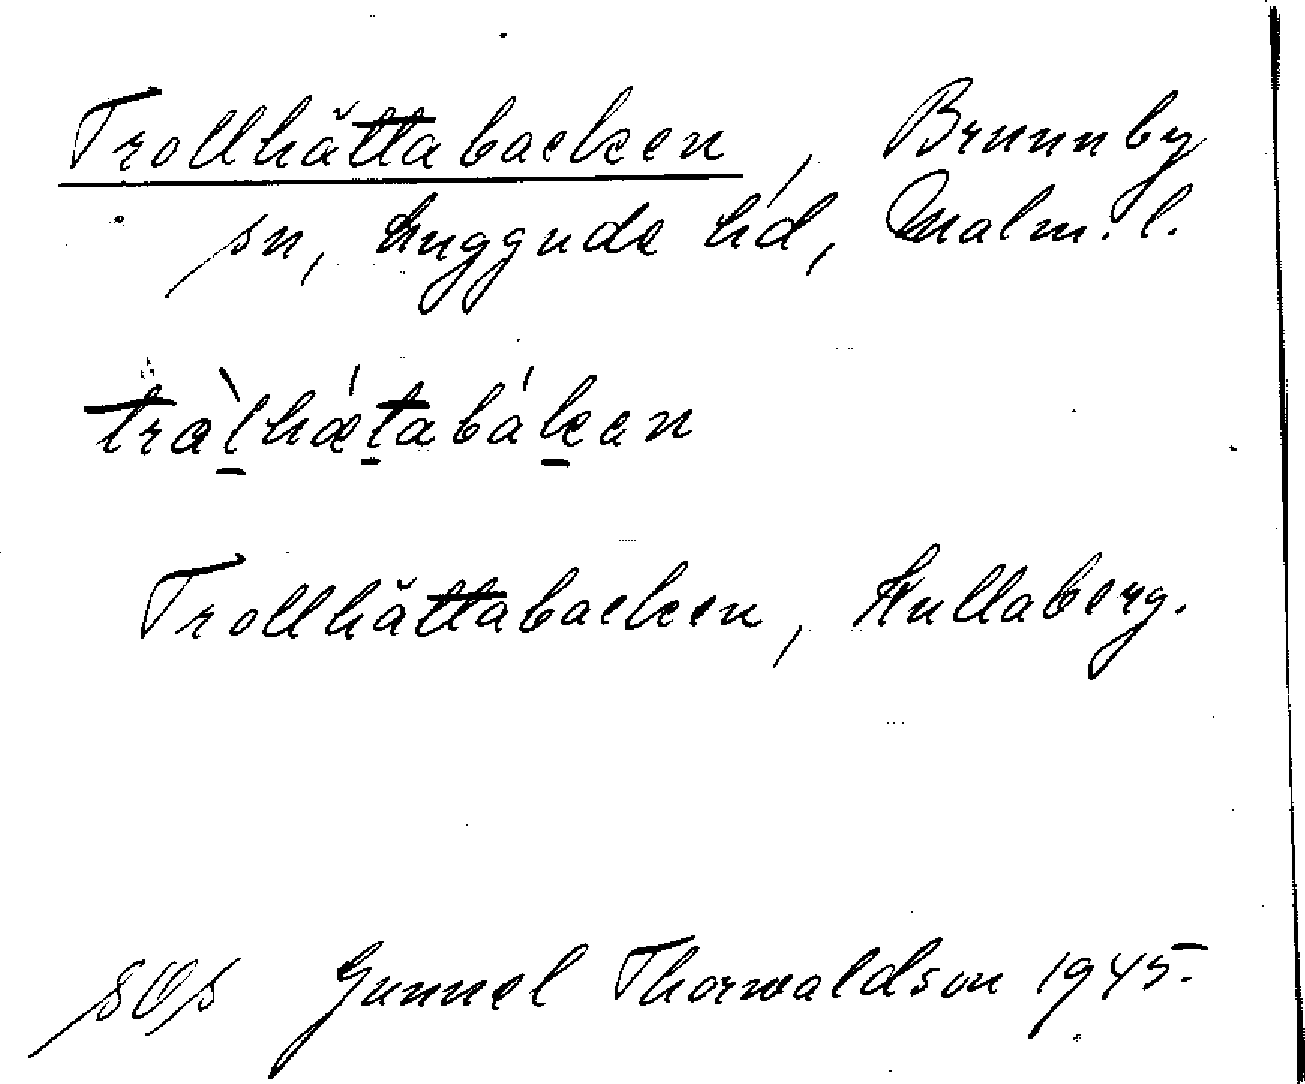 Trollhättabacken, Brunnby
sn, Luggude hd, Malm. l.
tràl̠hǽt̠abák̠an
Trollhättabacken, Kullaberg.
Gunnel Thorwaldson 1945.